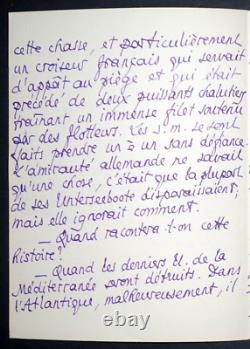 cette chasse, et particulièrement
un croiseur français qui servait
d'appât au piège et qui était
précédé de deux puissants chalutiers
traînant un immense filet soutenu
par des flotteurs. Les S.m. se sont
faits prendre un à un sans défiance.
L'amirauté allemande ne savait
qu'une chose, c'était que la plupart
de ses Unterseeboote disparaissaient;
mais elle ignorait comment.
— Quand racontera-t-on cette
histoire?
— Quand les derniers de la
Méditerranée seront détruits. Dans
l'Atlantique, malheureusement, il
ebay